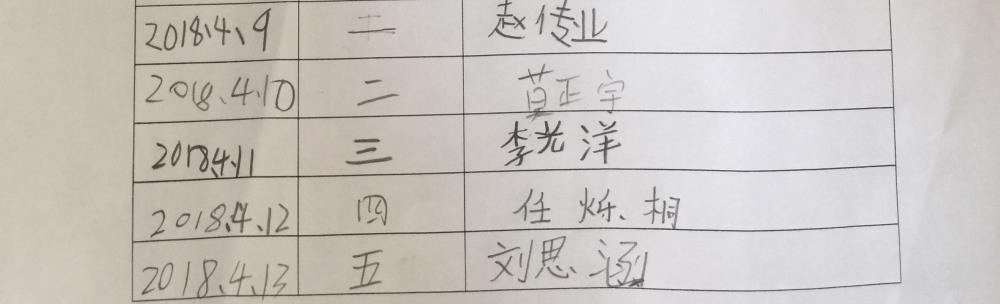 2018.4.9 二 赵传业
2018.4.10 二 莫正宇
2018.4.11 三 李光洋
2018.4.12 四 任烁桐
2018.4.13 五 刘思涵